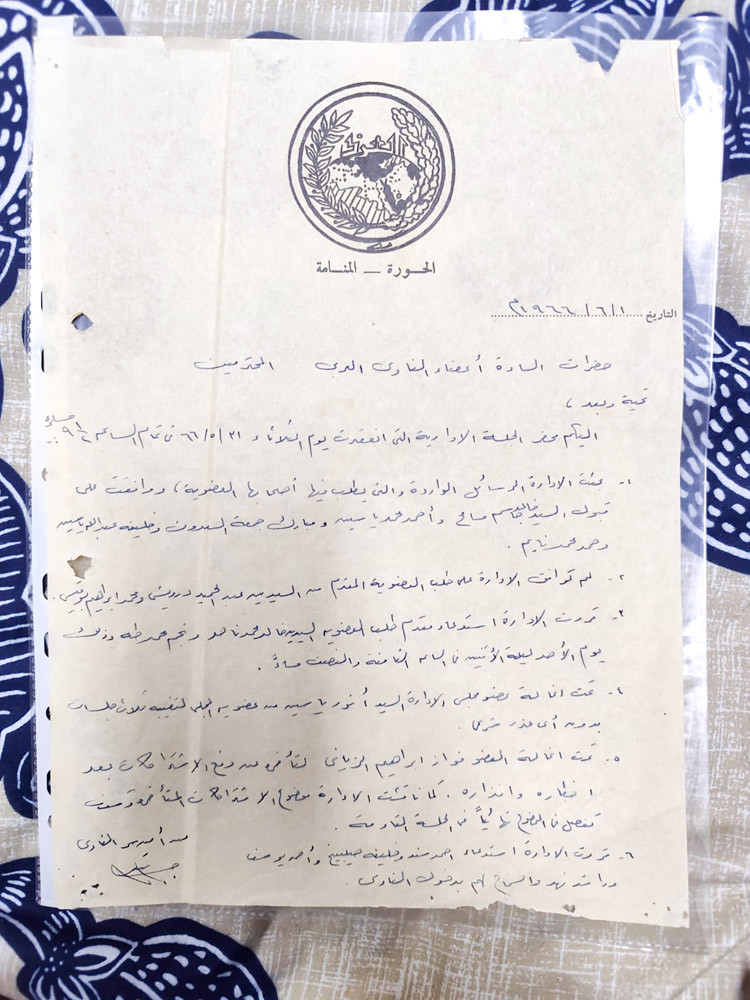 الحورة ـ المنامة
التاريخ ١/٦/١٩٦٦م
حضرات السادة أعضاء النادى العربى المحترمين
تحية وبعد ،
اليكم محضر الجلسة الادارية التى انعقدت يوم الثلاثاء ٣١/٥/٦٦ فى تمام الساعه ٩ ١/٢ مساء
١- بحثت الادارة الرسائل الواردة والتى يطلب فيها أصحابها العضوية ، ووافقت على
قبول السيد قاسم صالح وأحمد محمد ياسين ومبارك جمعة السعدون وخليفه عبدالله ياسين
وحمد محمد نايم .
٢- لم توافق الادارة على طلب العضوية المقدم من السيدين عبدالحميد درويش ومحمد ابراهيم
٣- قررت الادارة استدعاء مقدم طلب العضويه السيدين خالد محمد ناهد ونجم محمد طه وذلك
يوم الأحد ليلة الأثنين فى الساعه الثامنة والنصف مساءً .
٤- تمت اقالة عضو مجلس الادارة السيد أنور ياسين من عضويه المجلس لتغيبه ثلاث جلسات
بدون أى عذر شرعى .
٥- تمت اقالة العضو فواز ابراهيم الزيانى لتأخره عن دفع الاشتراكات بعد
اخطاره وانذاره . كما ناقشت الادارة موضوع الاشتراكات المتأخرة وسوف
تفصل فى الموضوع نهائياً فى الجلسة القادمة .
٦- قررت الادارة استدعاء احمد سند وخليفه وأحمد يوسف
وراشد فهد والسماح لهم بدخول النادى .
عن أمين سر النادى